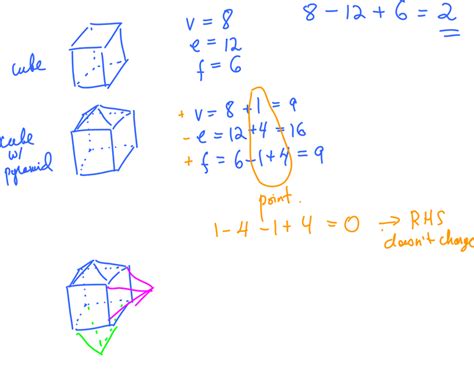 v = 8
e = 12
f = 6
8 - 12 + 6 = 2
cube
cube
w/
pyramid
+ v = 8 + 1 = 9
- e = 12 + 4 = 16
+ f = 6 - 1 + 4 = 9
point.
1 - 4 - 1 + 4 = 0 → RHS
doesn't change